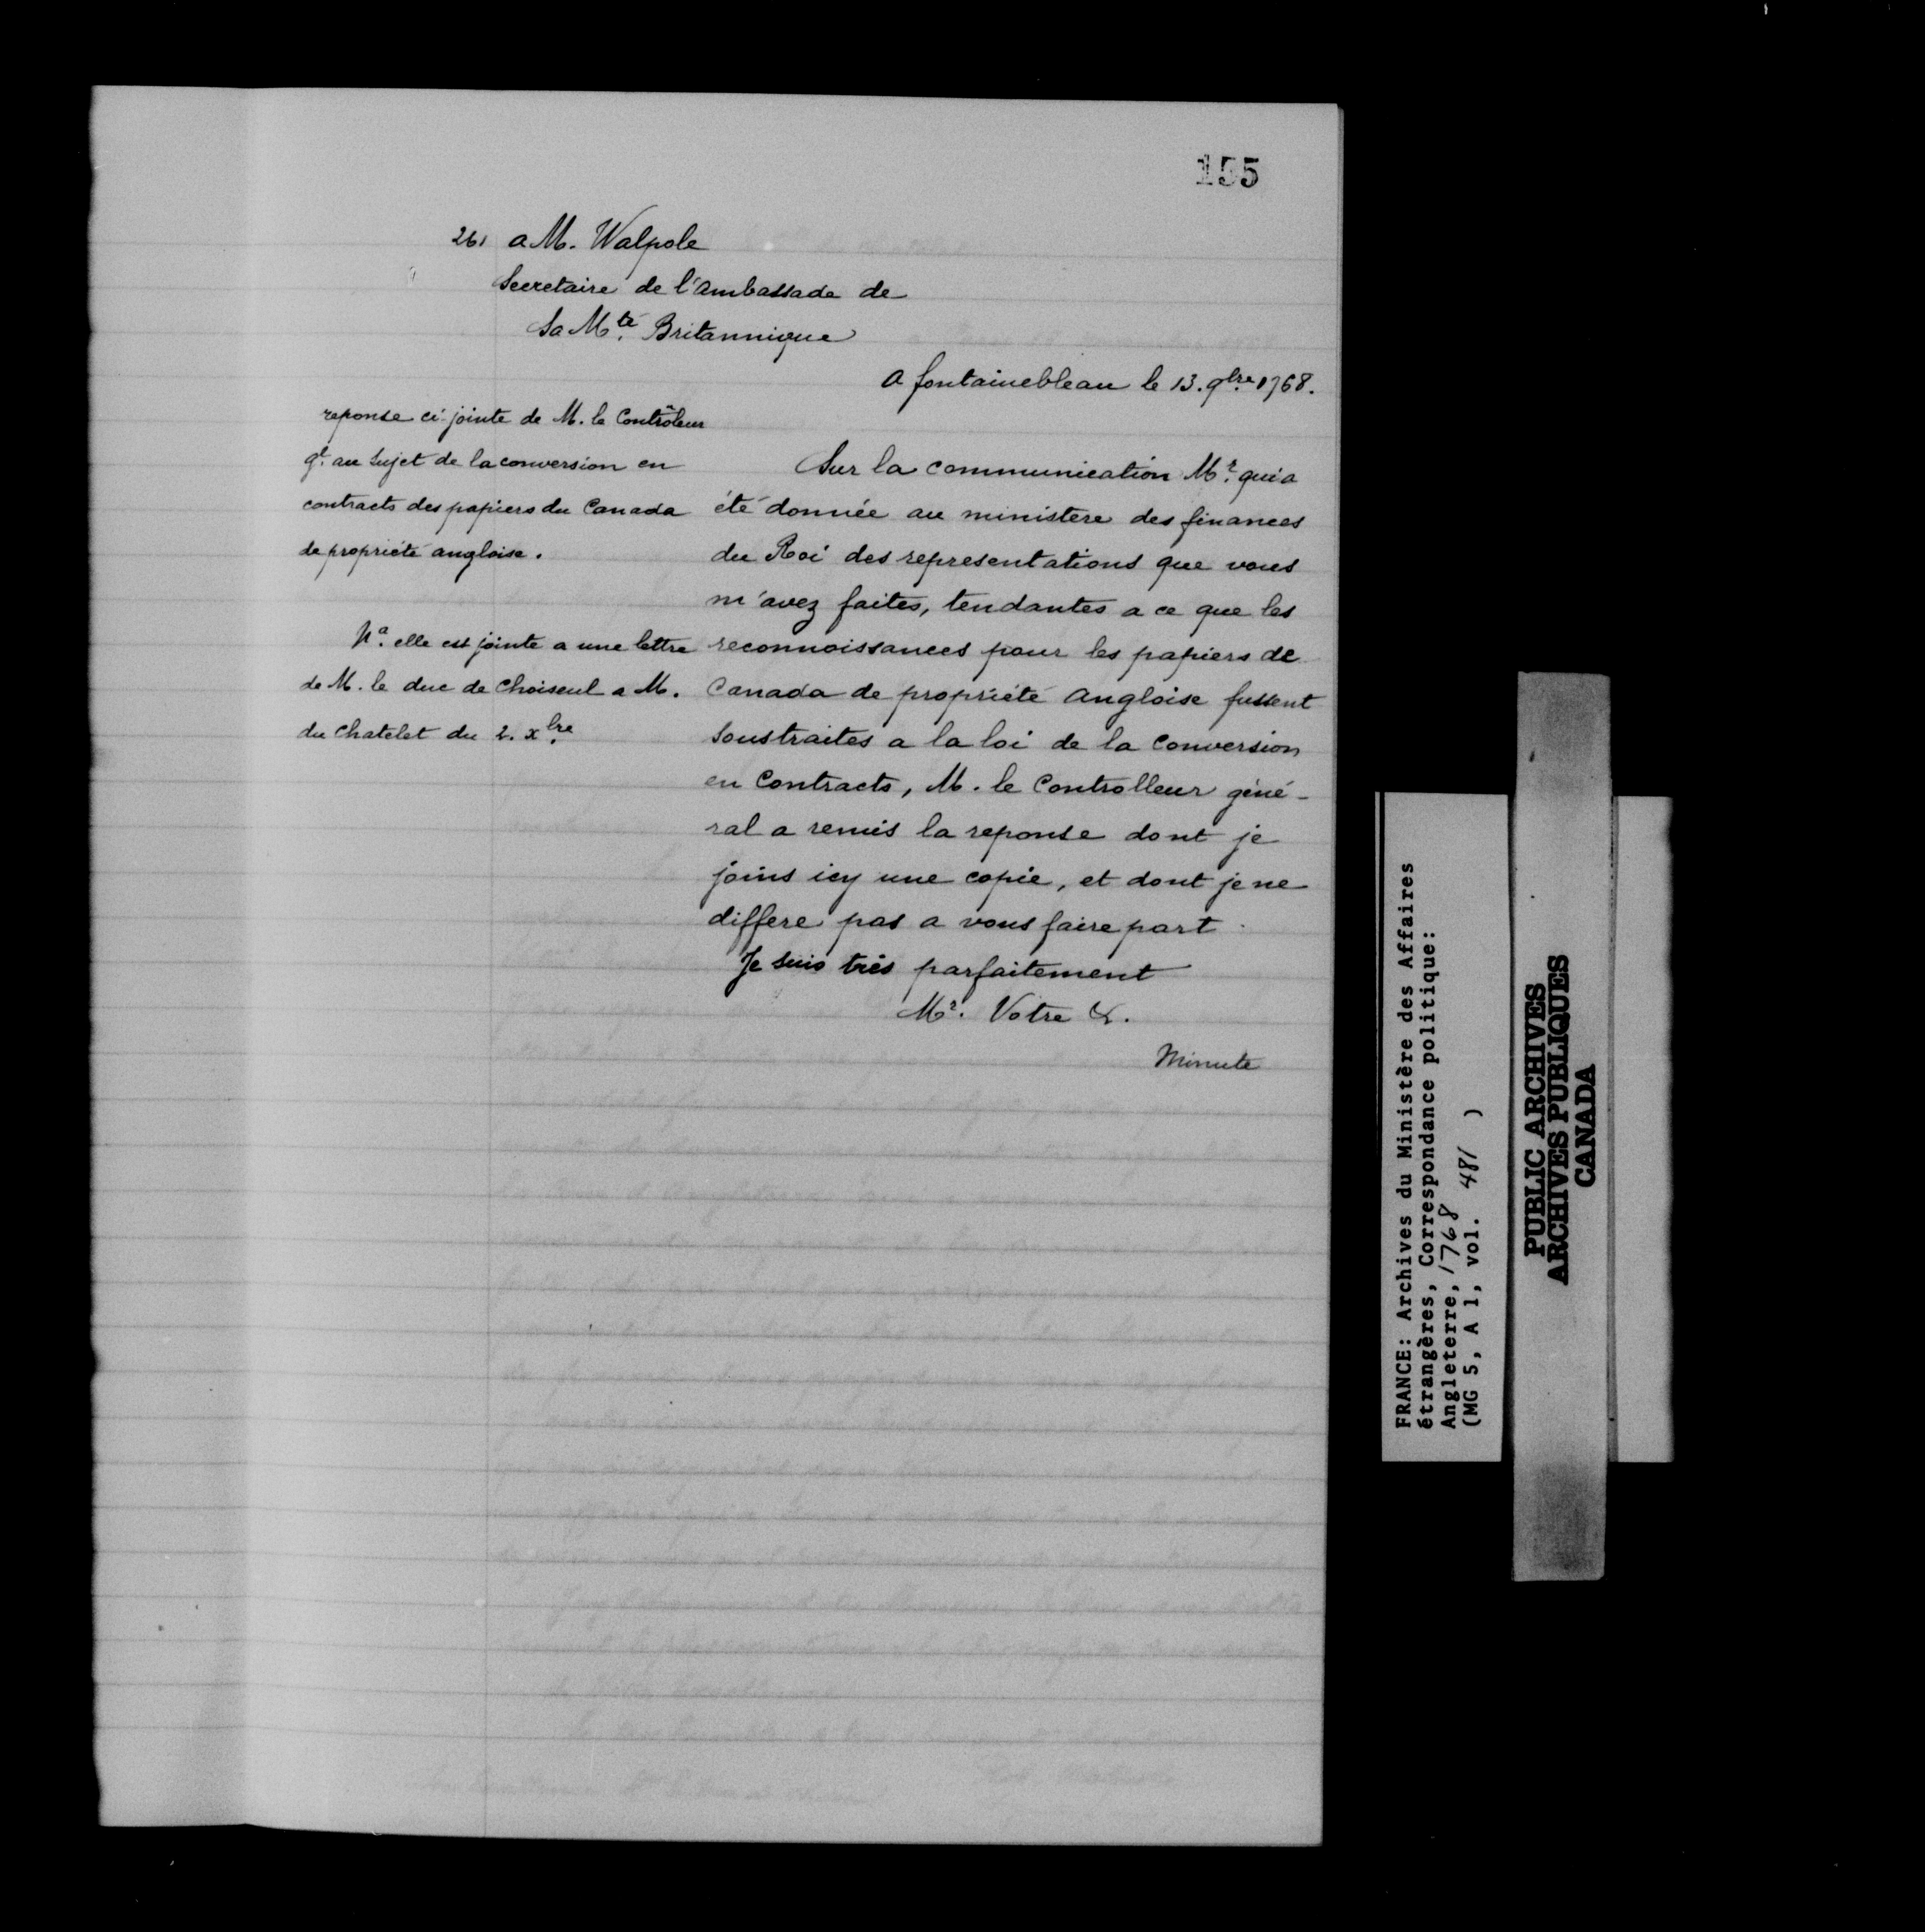 155
261 a M. Walpole
Secretaire de l'ambassade de
Sa Mté. Britannique
A fontainebleau le 13. 9bre. 1768.
reponse ci-jointe de M. le Contrôleur
gl. au Sujet de la conversion en
contracts des papiers du Canada
de propriété angloise.
Na. elle est jointe a une lettre
de M. le duc de Choiseul a M.
du Chatelet du 2. xbre.
Sur la communication Mr. qui a
été donnée au ministere des finances
du Roi des representations que vous
m'avez faites, tendantes a ce que les
reconnoissances pour les papiers de
Canada de propriété angloise fussent
soustraites a la loi de la conversion
en Contracts, M. le Controlleur géné-
ral a remis la reponse dont je
joins icy une copie, et dont je ne
differe pas a vous faire part.
Je suis très parfaitement
Mr. Votre &.
Minute
FRANCE: Archives du Ministère des Affaires
étrangères, Correspondance politique:
Angleterre, 1768
(MG 5, A 1, vol. 481 )
PUBLIC ARCHIVES
ARCHIVES PUBLIQUES
CANADA